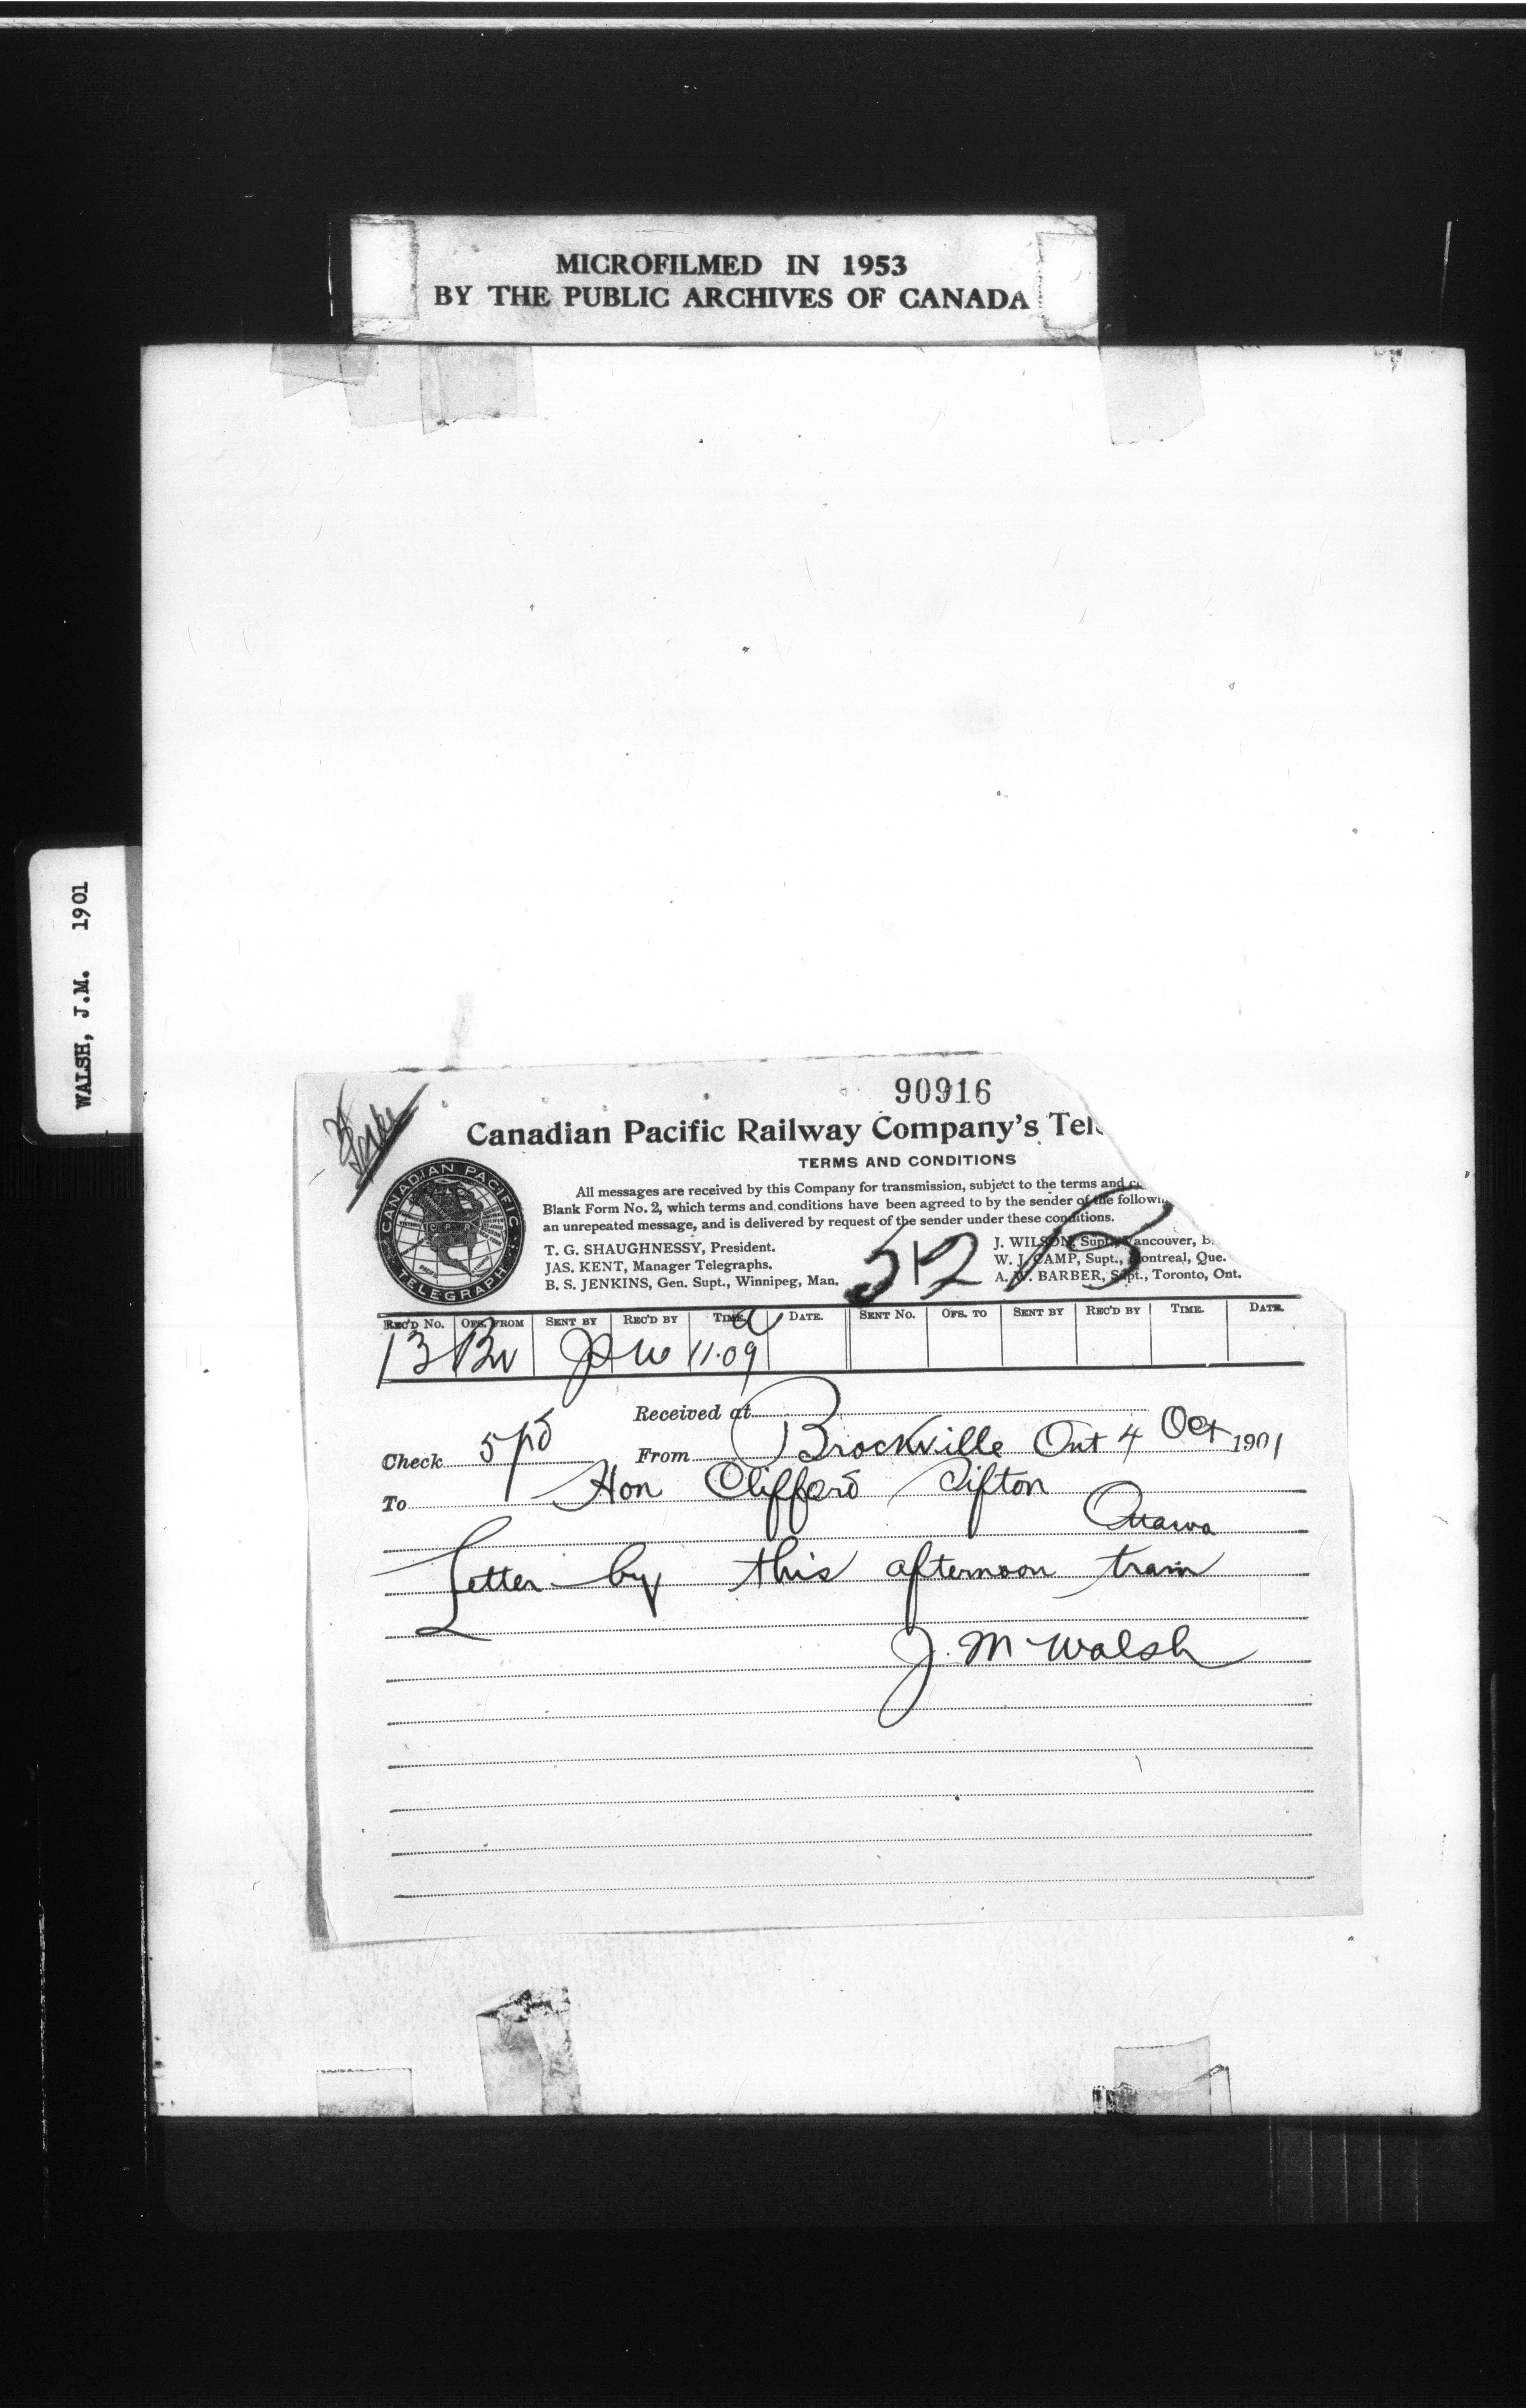 MICROFILMED IN 1953
BY THE PUBLIC ARCHIVES OF CANADA
WALSH, J.M. 1901
90916
Canadian Pacific Railway Company's Tel
TERMS AND CONDITIONS
All messages are received by this Company for transmission, subject to the terms and
Blank Form No. 2, which terms and conditions have been agreed to by the sender of the
an unrepeated message, and is delivered by request of the sender under these conditions.
T. G. SHAUGHNESSY, President.
JAS. KENT, Manager Telegraphs.
B. S. JENKINS, Gen. Supt., Winnipeg, Man.
J. WILSON, Supt., Vancouver, B.
W. J. CAMP, Supt., Montreal, Que.
A. W. BARBER, Supt., Toronto, Ont.
CANADIAN PACIFIC
TELEGRAPH
512 B
REC'D NO. OFS. FROM SENT BY REC'D BY TIME. DATE. SENT NO. OFS. TO SENT BY REC'D BY TIME. DATE.
13 11.09
Received at
Check 5 pd From Brockville Ont 4 Oct 1901
To Hon Clifford Sifton
Ottawa
Letter by this afternoon train
J. M Walsh